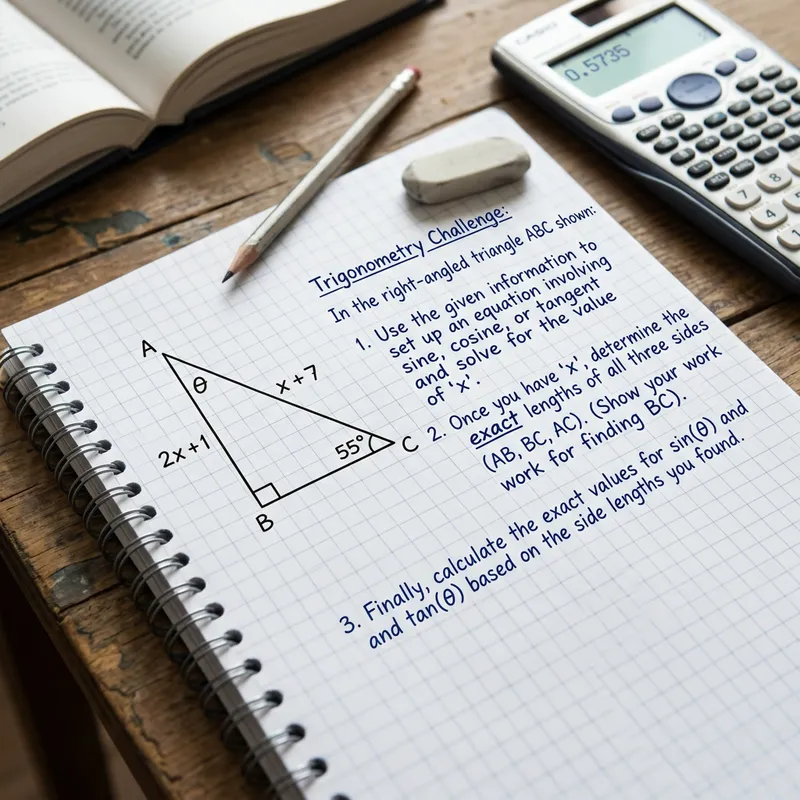 CASIO
0.5735
7
8
4
1
Trigonometry Challenge:
In the right-angled triangle ABC shown:
1. Use the given information to
set up an equation involving
sine, cosine, or tangent
and solve for the value
of 'x'.
2. Once you have 'x', determine the
exact lengths of all three sides
(AB, BC, AC). (Show your work
work for finding BC).
3. Finally, calculate the exact values for sin(θ) and
and tan(θ) based on the side lengths you found.
A
θ
x+7
2x+1
55°
C
B